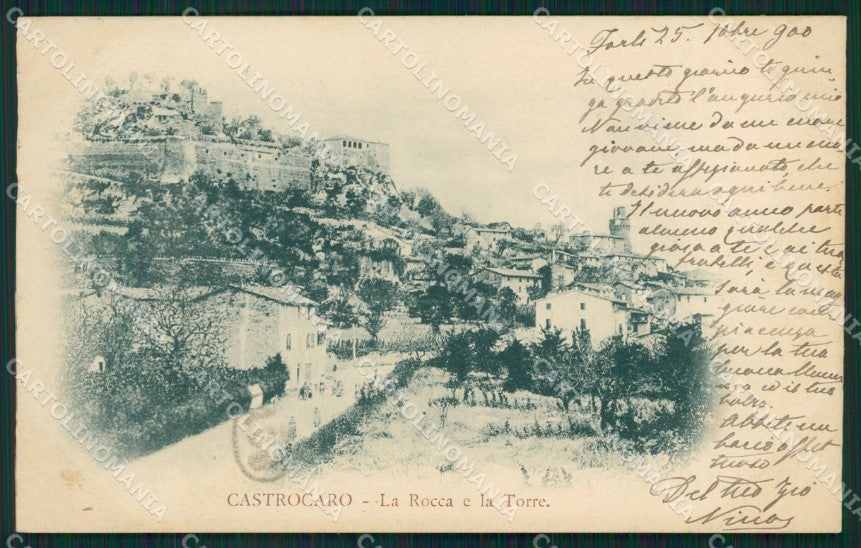 Forlì 25. 10bre 900
In questo giorno ti giun-
ga gradito l'augurio mio
Non viene da un cuore
giovane, ma da un cuo
re a te affezionato, che
ti desidera ogni bene.
Il nuovo anno porti
almeno qualche
gioia a te e ai tuoi
fratelli, e questa
sarà la mag
giore
piacenza
per la tua
buona Mamma
ed il tuo
babbo.
Abbiti un
bacio affet
tuoso
Del tuo Zio
Nino
CASTROCARO - La Rocca e la Torre.
CARTOLINOMANIA